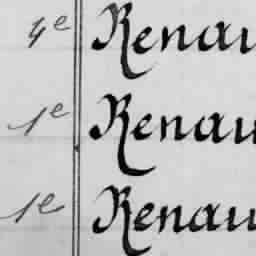 4e Renau
1e Renau
1e Renau